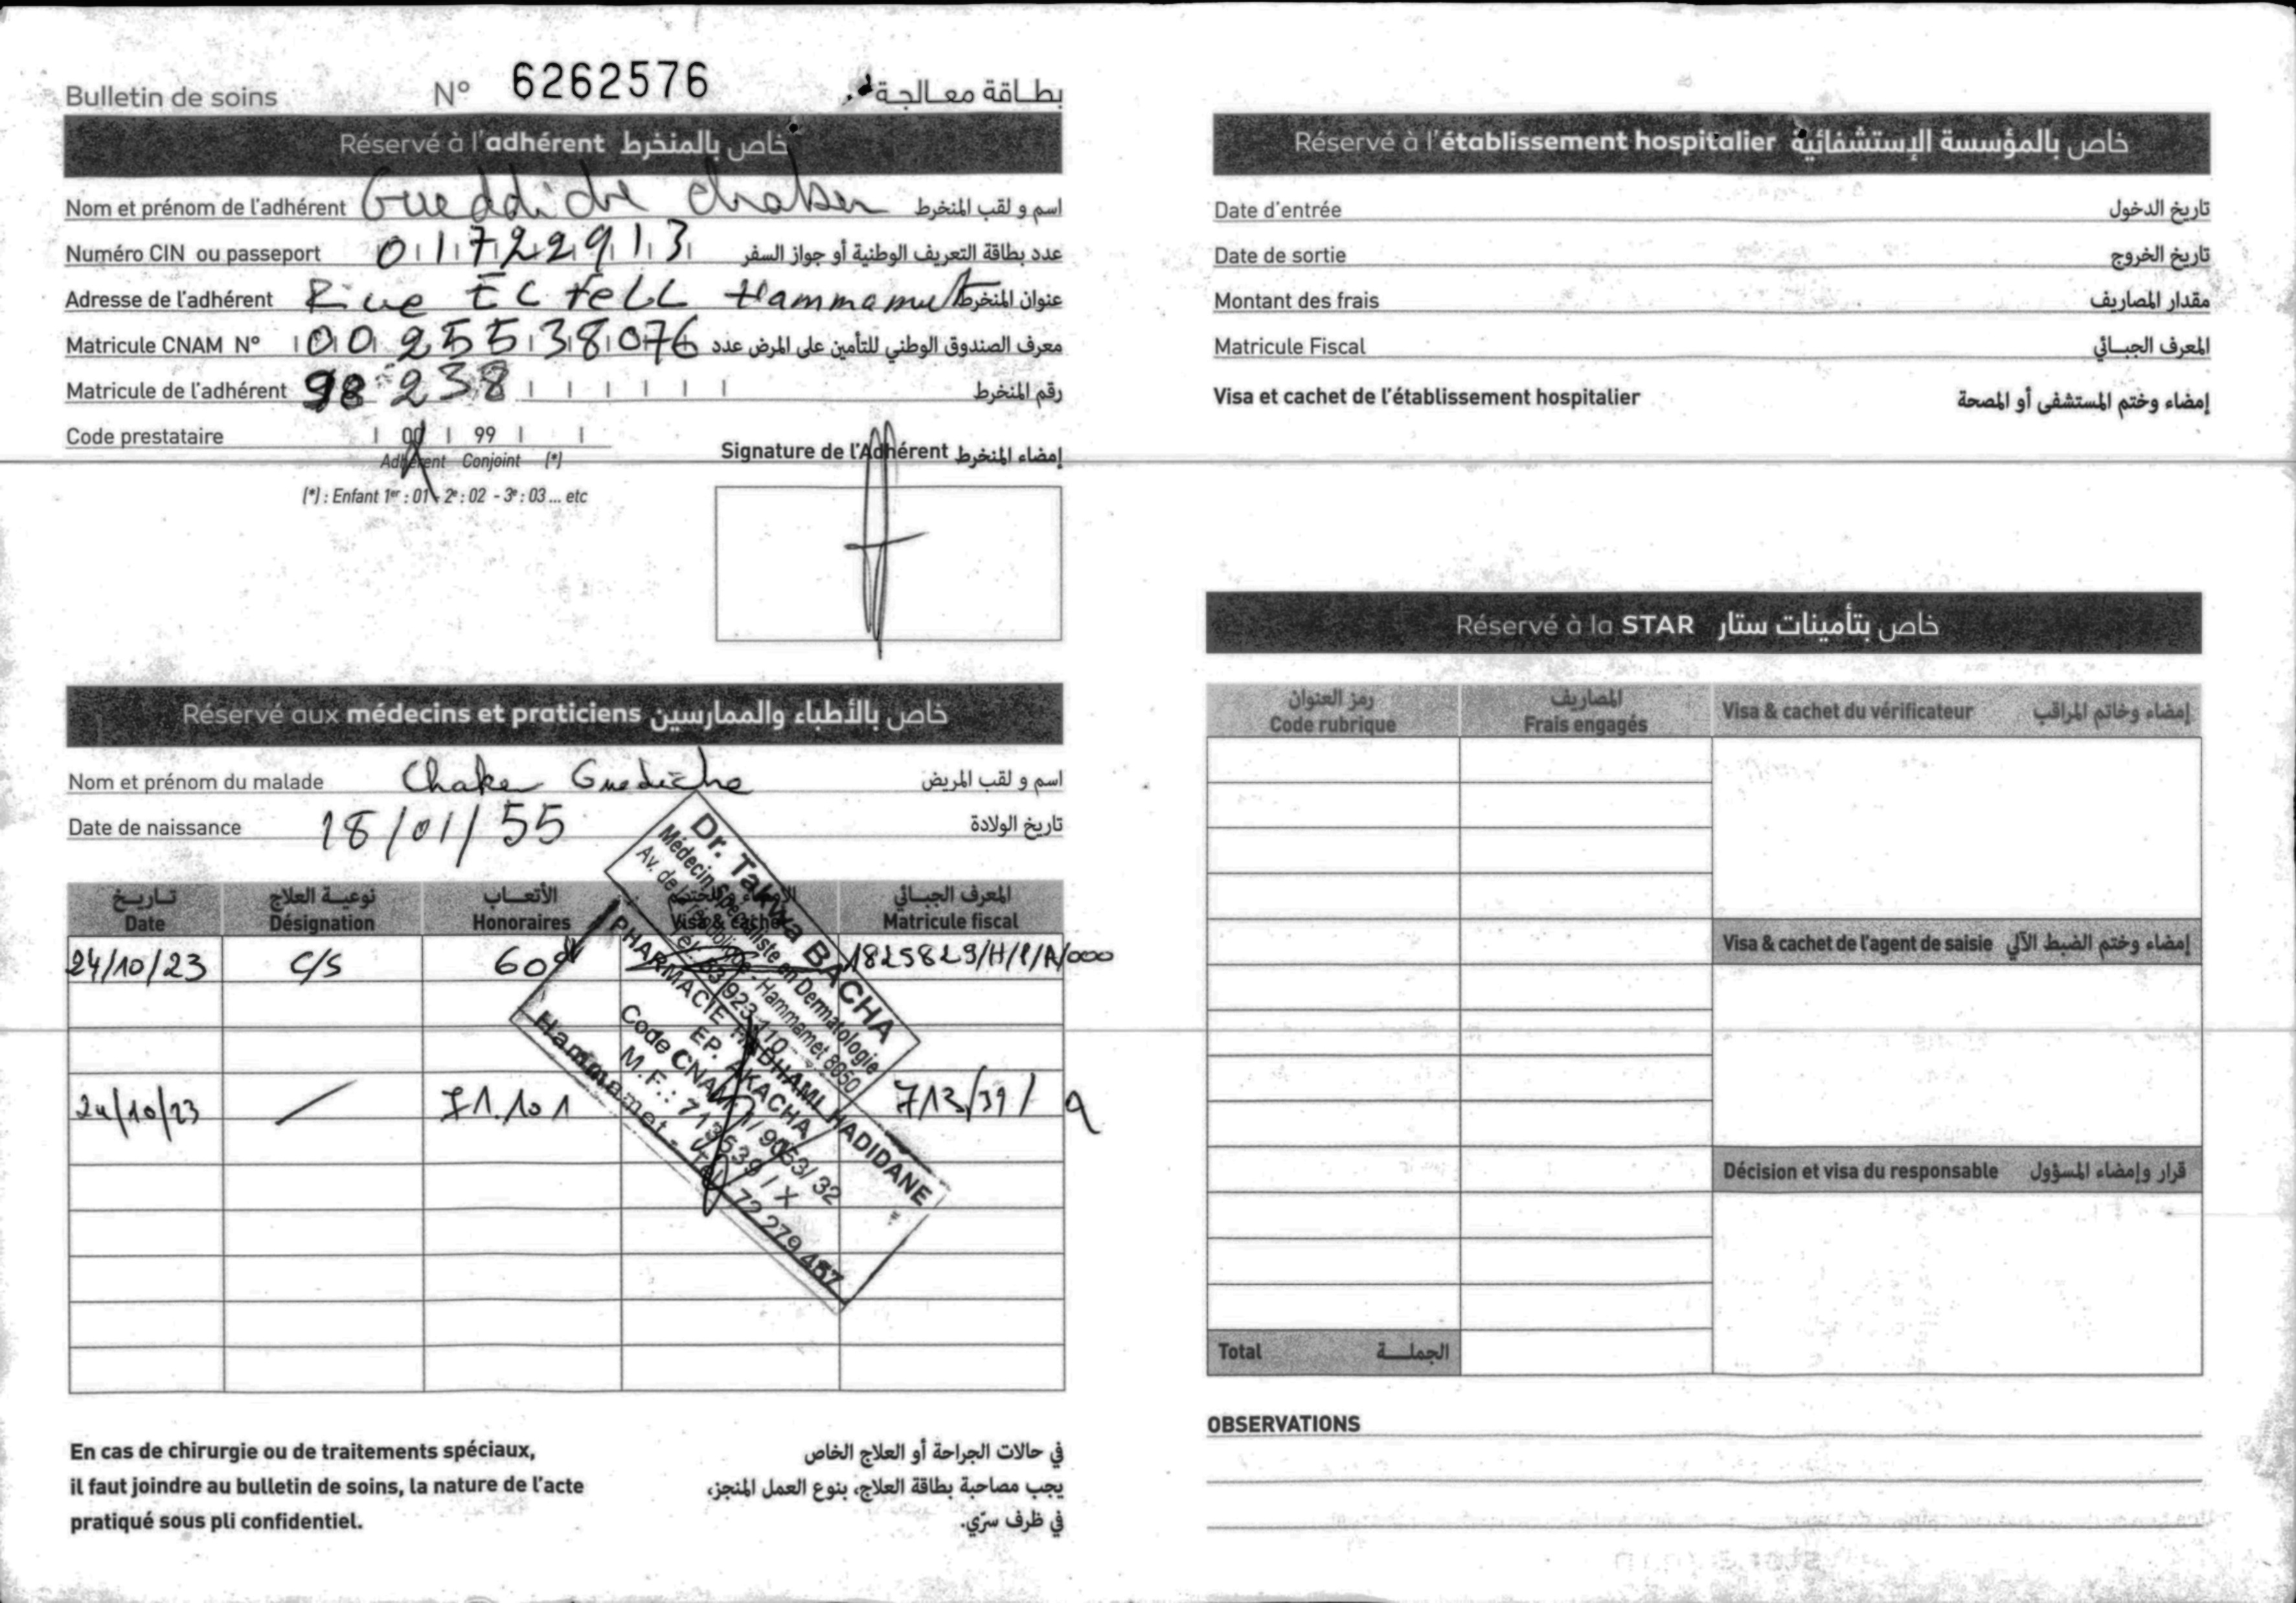 Bulletin de soins N° 6262576 بطاقة معالجة
Réservé à l'adhérent خاص بالمنخرط
Nom et prénom de l'adhérent Gueddiche Chaker اسم و لقب المنخرط
Numéro CIN ou passeport 01722913 عدد بطاقة التعريف الوطنية أو جواز السفر
Adresse de l'adhérent Rue Hammamet عنوان المنخرط
Matricule CNAM N° 0025538076 معرف الصندوق الوطني للتأمين على المرض عدد
Matricule de l'adhérent 98238 رقم المنخرط
Code prestataire 00 99
Adhérent Conjoint (*)
(*) : Enfant 1er : 01 - 2e : 02 - 3e : 03 ... etc
Signature de l'Adhérent إمضاء المنخرط
Réservé aux médecins et praticiens خاص بالأطباء والممارسين
Nom et prénom du malade Chaker Guediche اسم و لقب المريض
Date de naissance 18/01/55 تاريخ الولادة
تاريخ نوعية العلاج الأتعاب الإمضاء والختم المعرف الجبائي
Date Désignation Honoraires Visa & cachet Matricule fiscal
24/10/23 C/S 60d 1825829/H/P/A/000
24/10/23 71.101
Dr. Takwa BACHA
Médecin Spécialiste en Dermatologie
Av. de la république - Hammamet 8050
Tél. 53 923 110
PHARMACIE HADHAMI HADIDANE
EP. AKACHA
Code CNAM 1/ 9053/ 32
M.F.: 713539 / X
Hammamet - Tél. 72 279 487
En cas de chirurgie ou de traitements spéciaux,
il faut joindre au bulletin de soins, la nature de l'acte
pratiqué sous pli confidentiel.
في حالات الجراحة أو العلاج الخاص
يجب مصاحبة بطاقة العلاج، بنوع العمل المنجز،
في ظرف سرّي.
Réservé à l'établissement hospitalier خاص بالمؤسسة الإستشفائية
Date d'entrée تاريخ الدخول
Date de sortie تاريخ الخروج
Montant des frais مقدار المصاريف
Matricule Fiscal المعرف الجبائي
Visa et cachet de l'établissement hospitalier إمضاء وختم المستشفى أو المصحة
Réservé à la STAR خاص بتأمينات ستار
رمز العنوان المصاريف
Code rubrique Frais engagés Visa & cachet du vérificateur إمضاء وخاتم المراقب
Visa & cachet de l'agent de saisie إمضاء وختم الضبط الآلي
Décision et visa du responsable قرار وإمضاء المسؤول
Total الجملة
OBSERVATIONS